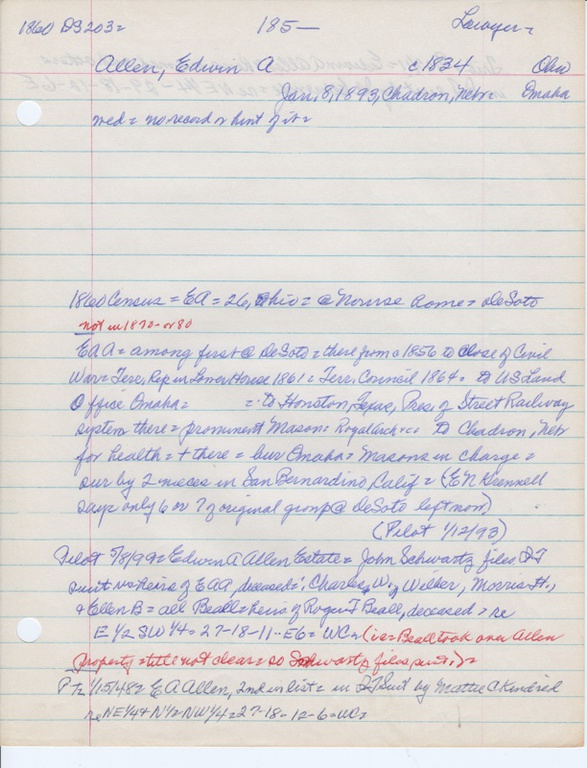 1860 DS203= 185— Lawyer=
Allen, Edwin A c1834 Ohio
Jan, 8, 1893, Chadron, Nebr= Omaha
wed = no record or hint of it=
1860 Census = EA = 26, Ohio = @ Nourse Rome = DeSoto
not in 1870 - or 80
EAA = among first @ DeSoto = there from c1856 to close of Civil
War = Terr, Rep in Lower House 1861 = Terr, Council 1864 = to US Land
Office Omaha = = to Houston, Texas, Pres, of Street Railway
system there = prominent Mason = Royal Arch to Chadron, Nebr
for health = + there = bur Omaha = Masons in Charge =
sur by 2 nieces in San Bernardino, Calif = (E N Grennell
says only 6 or 7 of original group @ DeSoto left now)
(Pilot 1/12/93)
Pilot 5/8/99 = Edwin A Allen Estate = John Schwartz files QT
suit vs heirs of EAA, deceased = Charles, W., Welker, Morris H.,
+ Ellen B = all Beall = heirs of Roger T Beall, deceased > re
E 1/2 SW 1/4 = 27-18-11 - E6 = WC = (ie = Beall took over Allen
property = title not clear = so Schwartz files suit,) =
E A Allen, 2nd in list = in QT Suit by Mattie C Kindred
re NE 1/4 + N 1/2 NW 1/4 = 27-18-12-6 = WC =